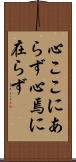 心ここにあ
らず心焉に
在らず